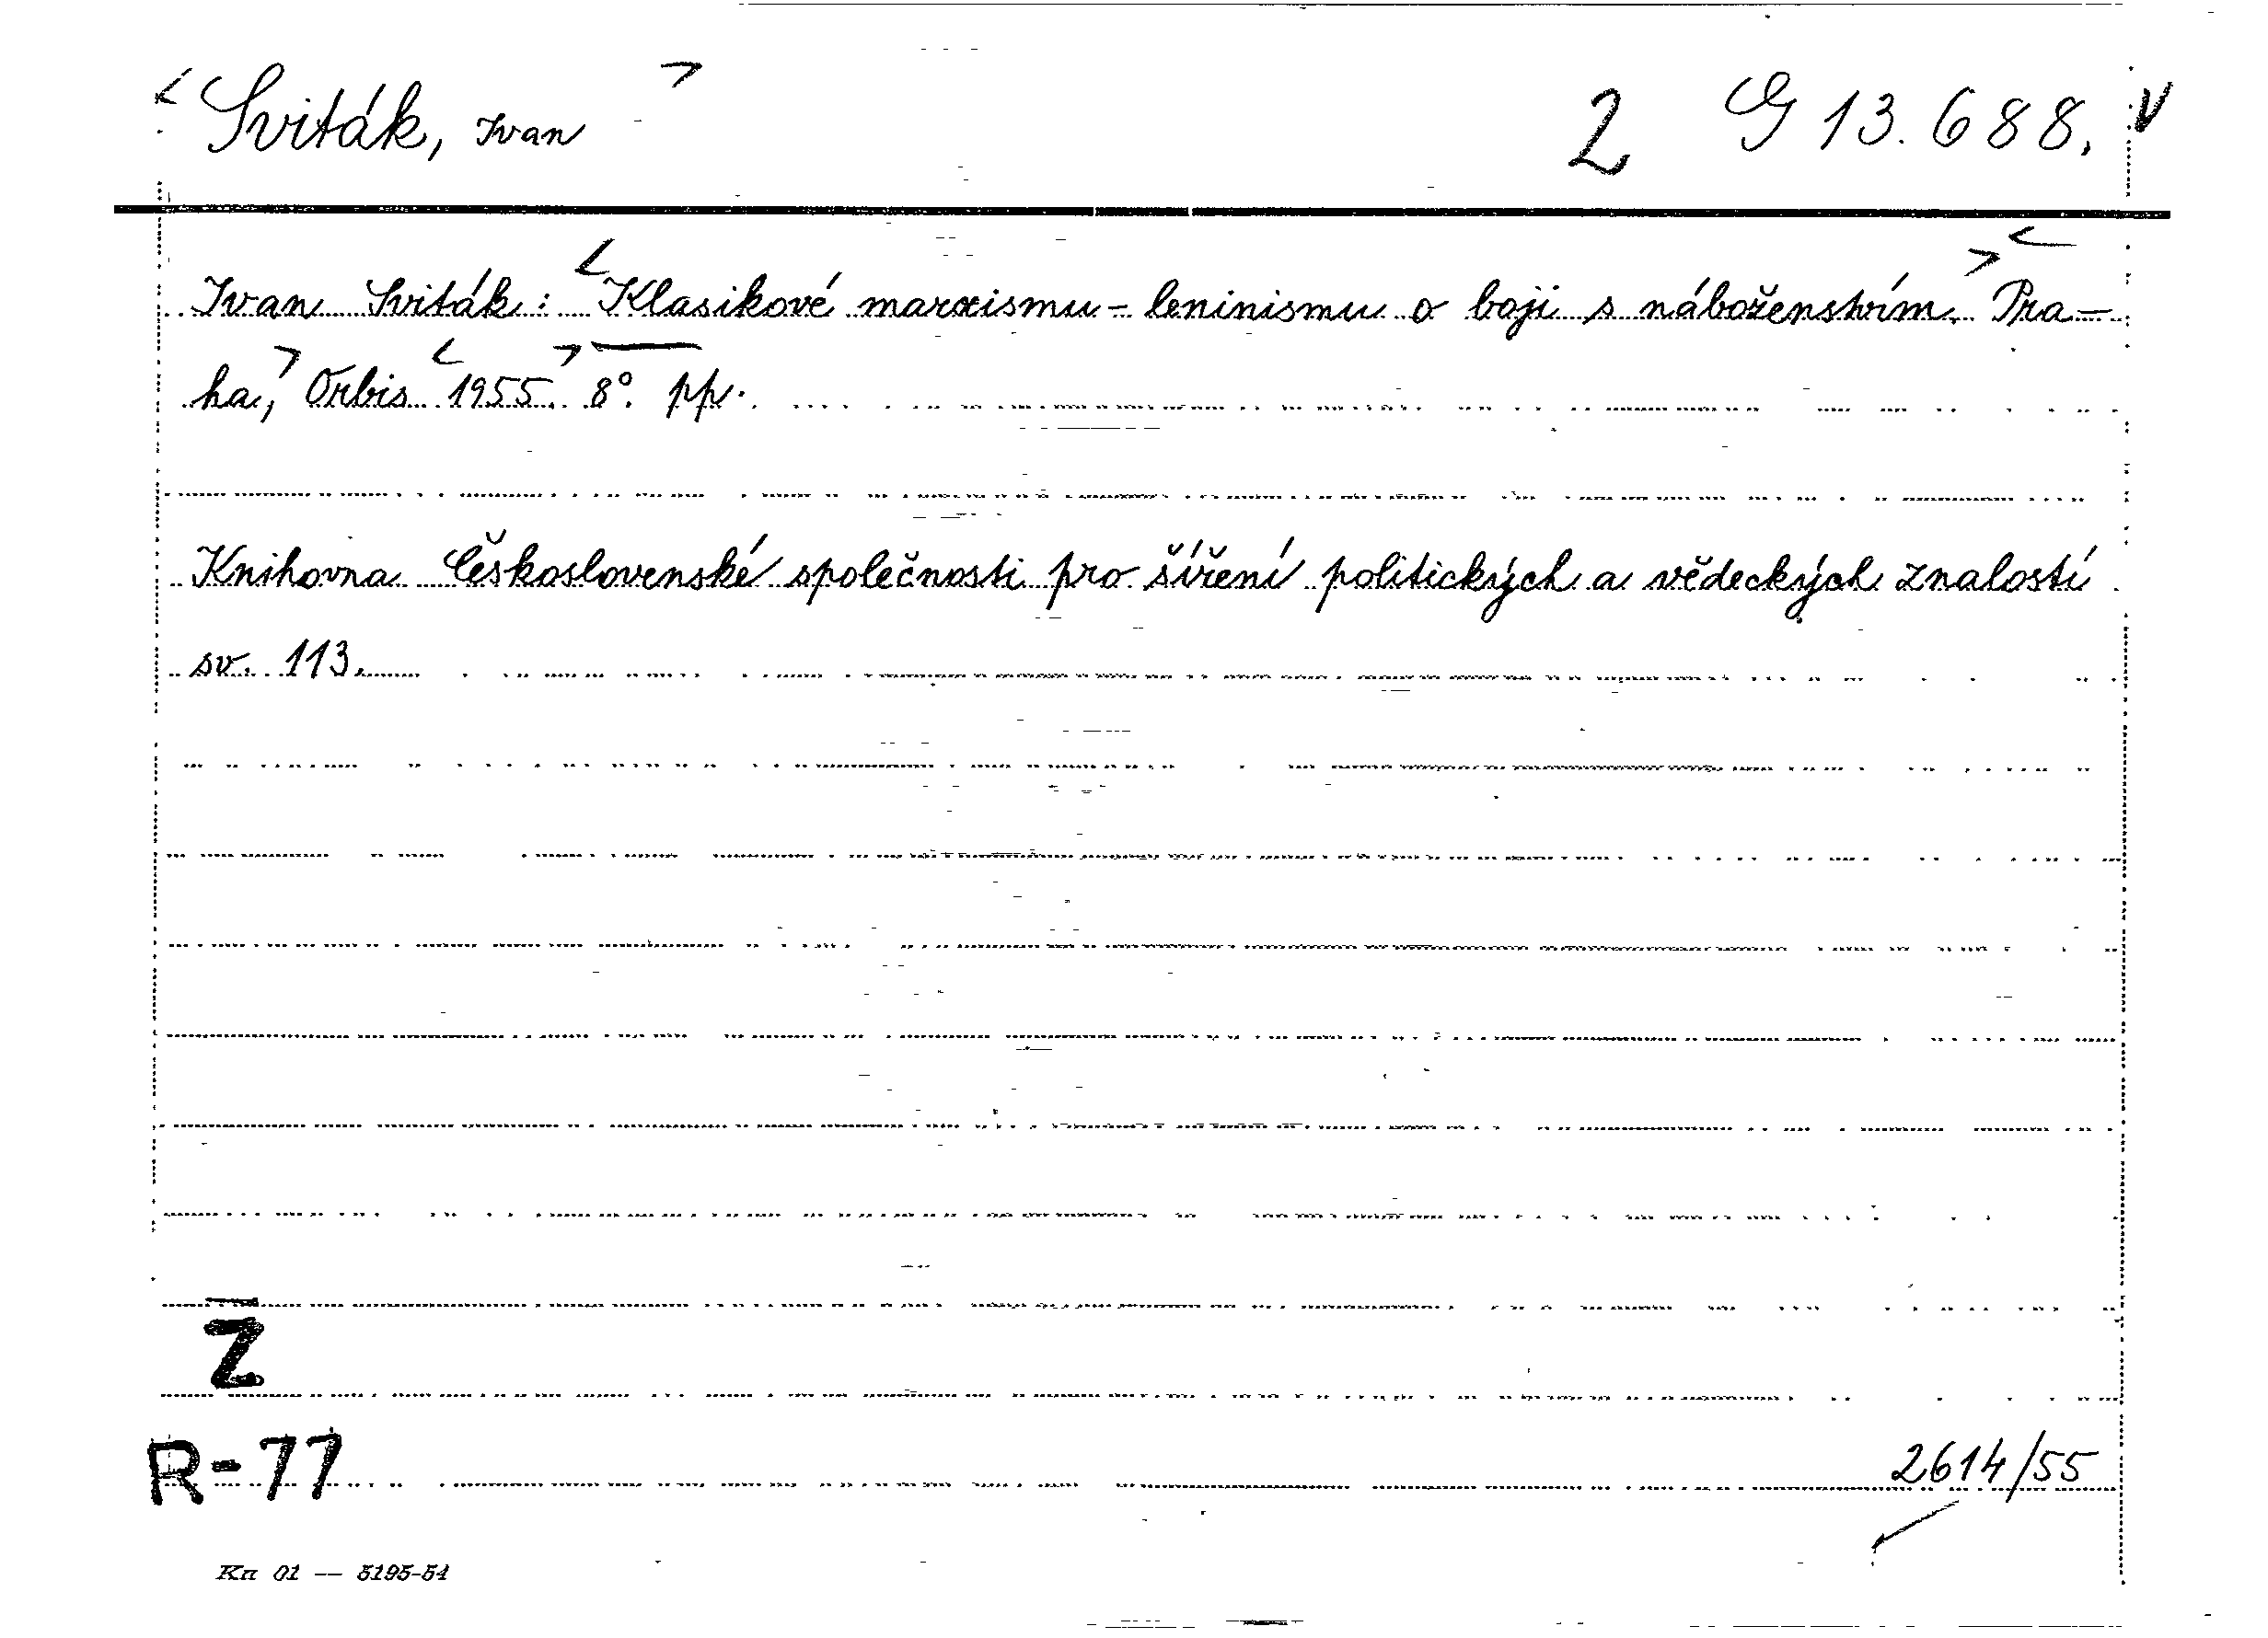 Sviták, Ivan 2 G 13.688. V
Ivan Sviták: Klasikové marxismu-leninismu o boji s náboženstvím. Pra-
ha, Orbis 1955. 8°. pp.
Knihovna Československé společnosti pro šíření politických a vědeckých znalostí
sv. 113.
Z
R-77
2614/55
Kn 01 — 5195-54